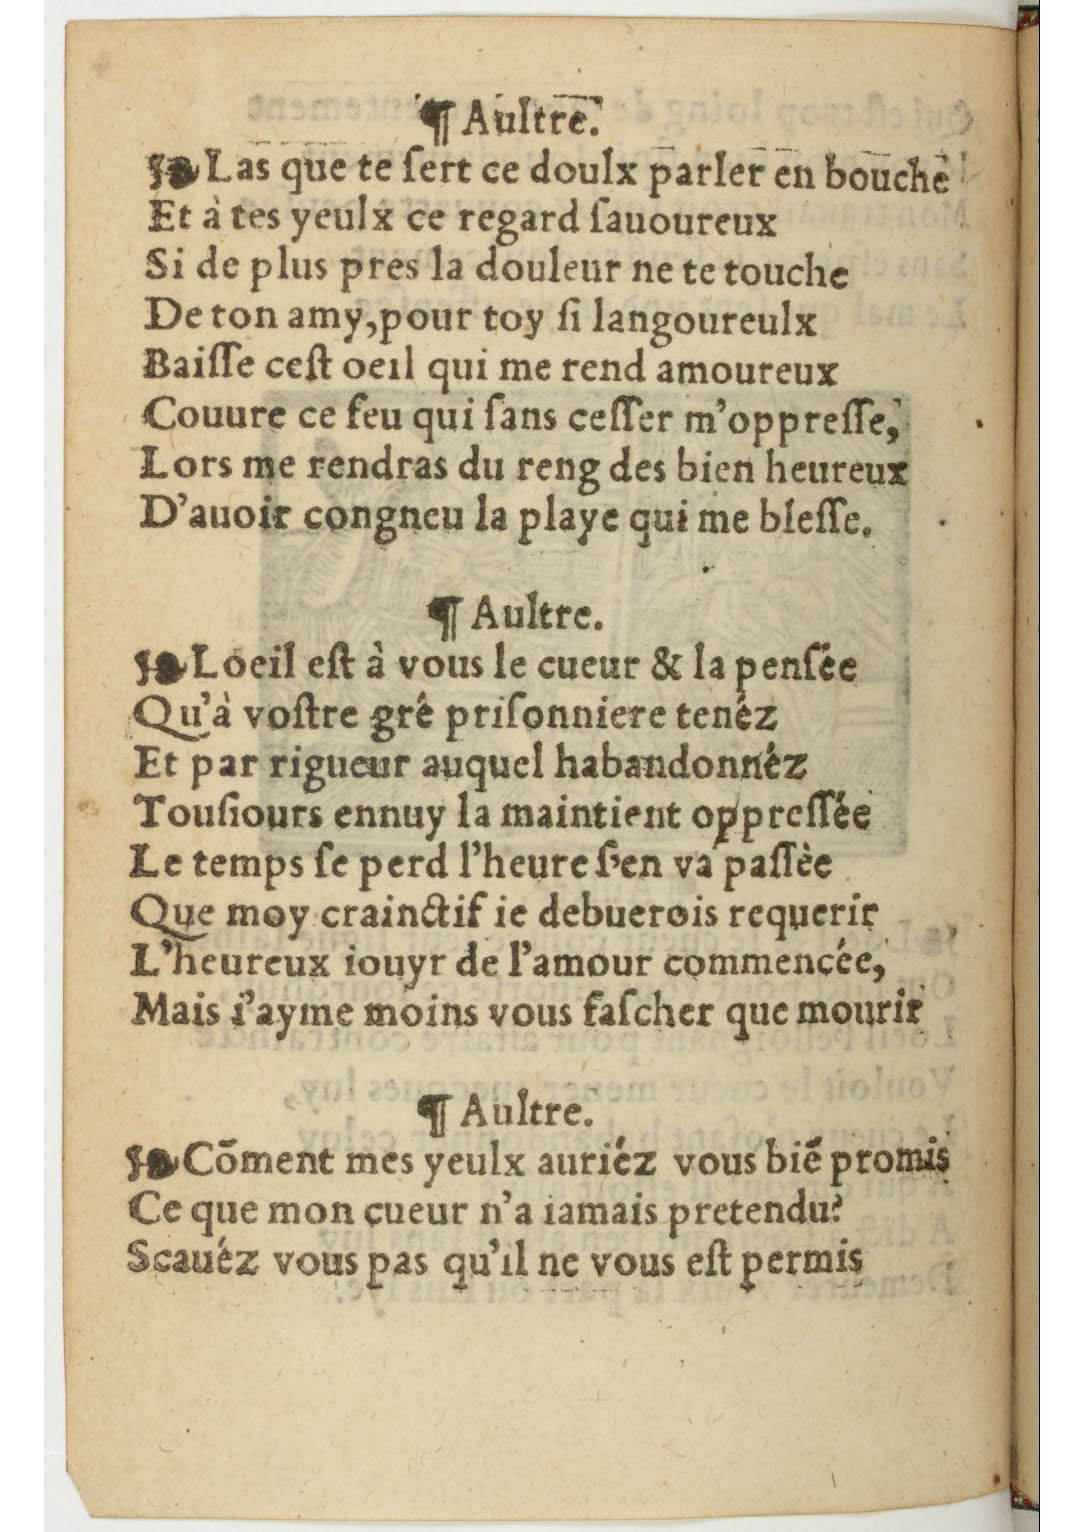 ¶ Aultre.
❧ Las que te ſert ce doulx parler en bouche
Et à tes yeulx ce regard ſauoureux
Si de plus pres la douleur ne te touche
De ton amy, pour toy ſi langoureulx
Baiſſe ceſt oeil qui me rend amoureux
Couure ce feu qui ſans ceſſer m'oppreſſe,
Lors me rendras du reng des bien heureux
D'auoir congneu la playe qui me bleſſe.
¶ Aultre.
❧ Loeil eſt à vous le cueur & la penſée
Qu'à voſtre gré priſonniere tenéz
Et par rigueur auquel habandonnéz
Touſiours ennuy la maintient oppreſſée
Le temps ſe perd l'heure ſ'en va paſſèe
Que moy crainctif ie debuerois requerir
L'heureux iouyr de l'amour commencée,
Mais i'ayme moins vous faſcher que mourir
¶ Aultre.
❧ Cõment mes yeulx auriéz vous biẽ promis
Ce que mon cueur n'a iamais pretendu?
Scauéz vous pas qu'il ne vous eſt permis